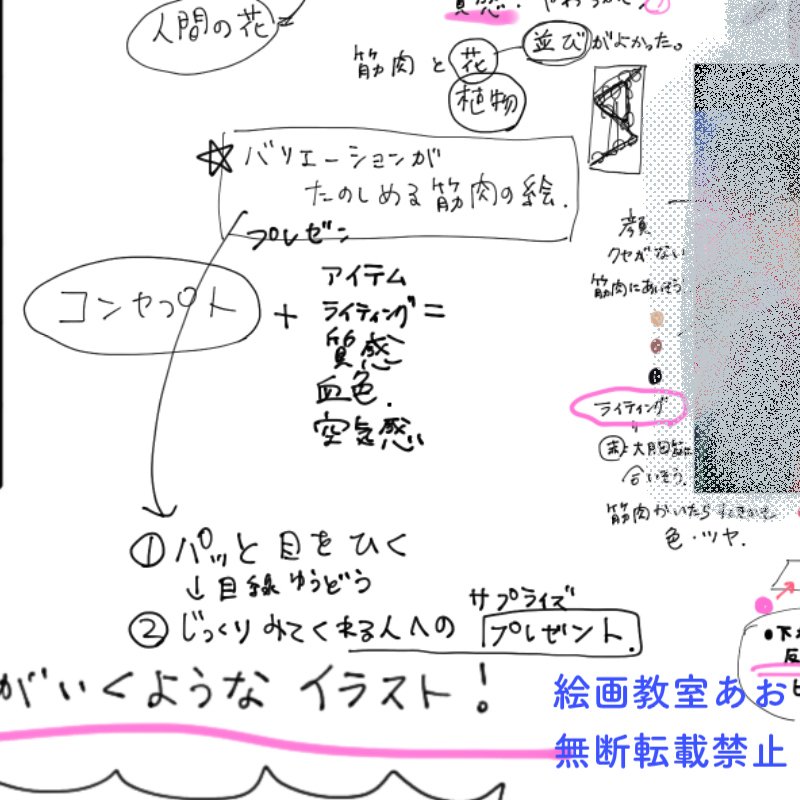 人間の花
質感
筋肉と花 並びがよかった。
植物
☆バリエーションが
たのしめる筋肉の絵.
プレゼン
コンセプト
+
アイテム
ライティング=
質感
血色.
空気感
顔
クセがない
筋肉にあいそう
ライティング
合いそう.
筋肉かいたら
色・ツヤ.
①パッと目をひく
↓目線ゆうどう
②じっくりみてくれる人への
サプライズ
プレゼント.
がいくようなイラスト!
絵画教室あお
無断転載禁止